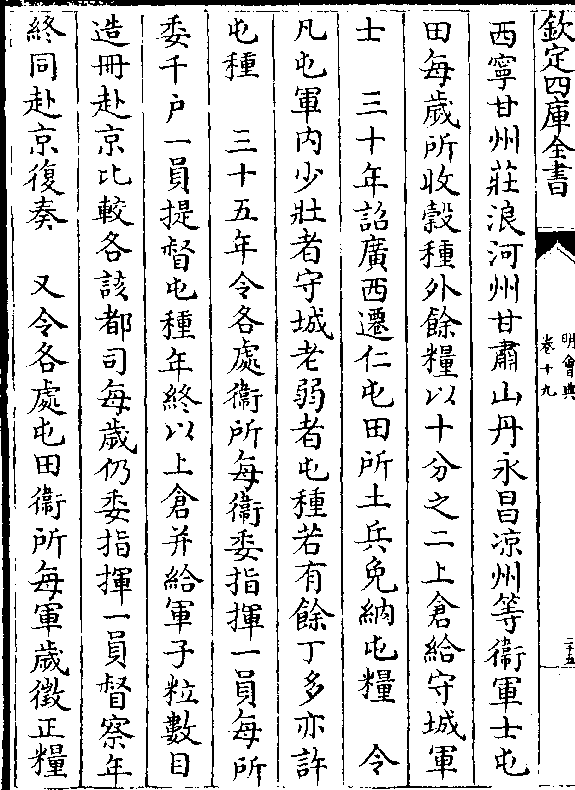 欽定四庫全書
明會典
卷十九
二十五
西寧甘州莊浪河州甘肅山丹永昌凉州等衞軍士屯
田每歲所收穀種外餘糧以十分之二上倉給守城軍
士　三十年詔廣西遷仁屯田所土兵免納屯糧　令
凡屯軍内少壯者守城老弱者屯種若有餘丁多亦許
屯種　三十五年令各處衞所每衞委指揮一員每所
委千户一員提督屯種年終以上倉并給軍子粒數目
造冊赴京比較各該都司每歲仍委指揮一員督察年
終同赴京復奏　又令各處屯田衞所每軍歲徵正糧